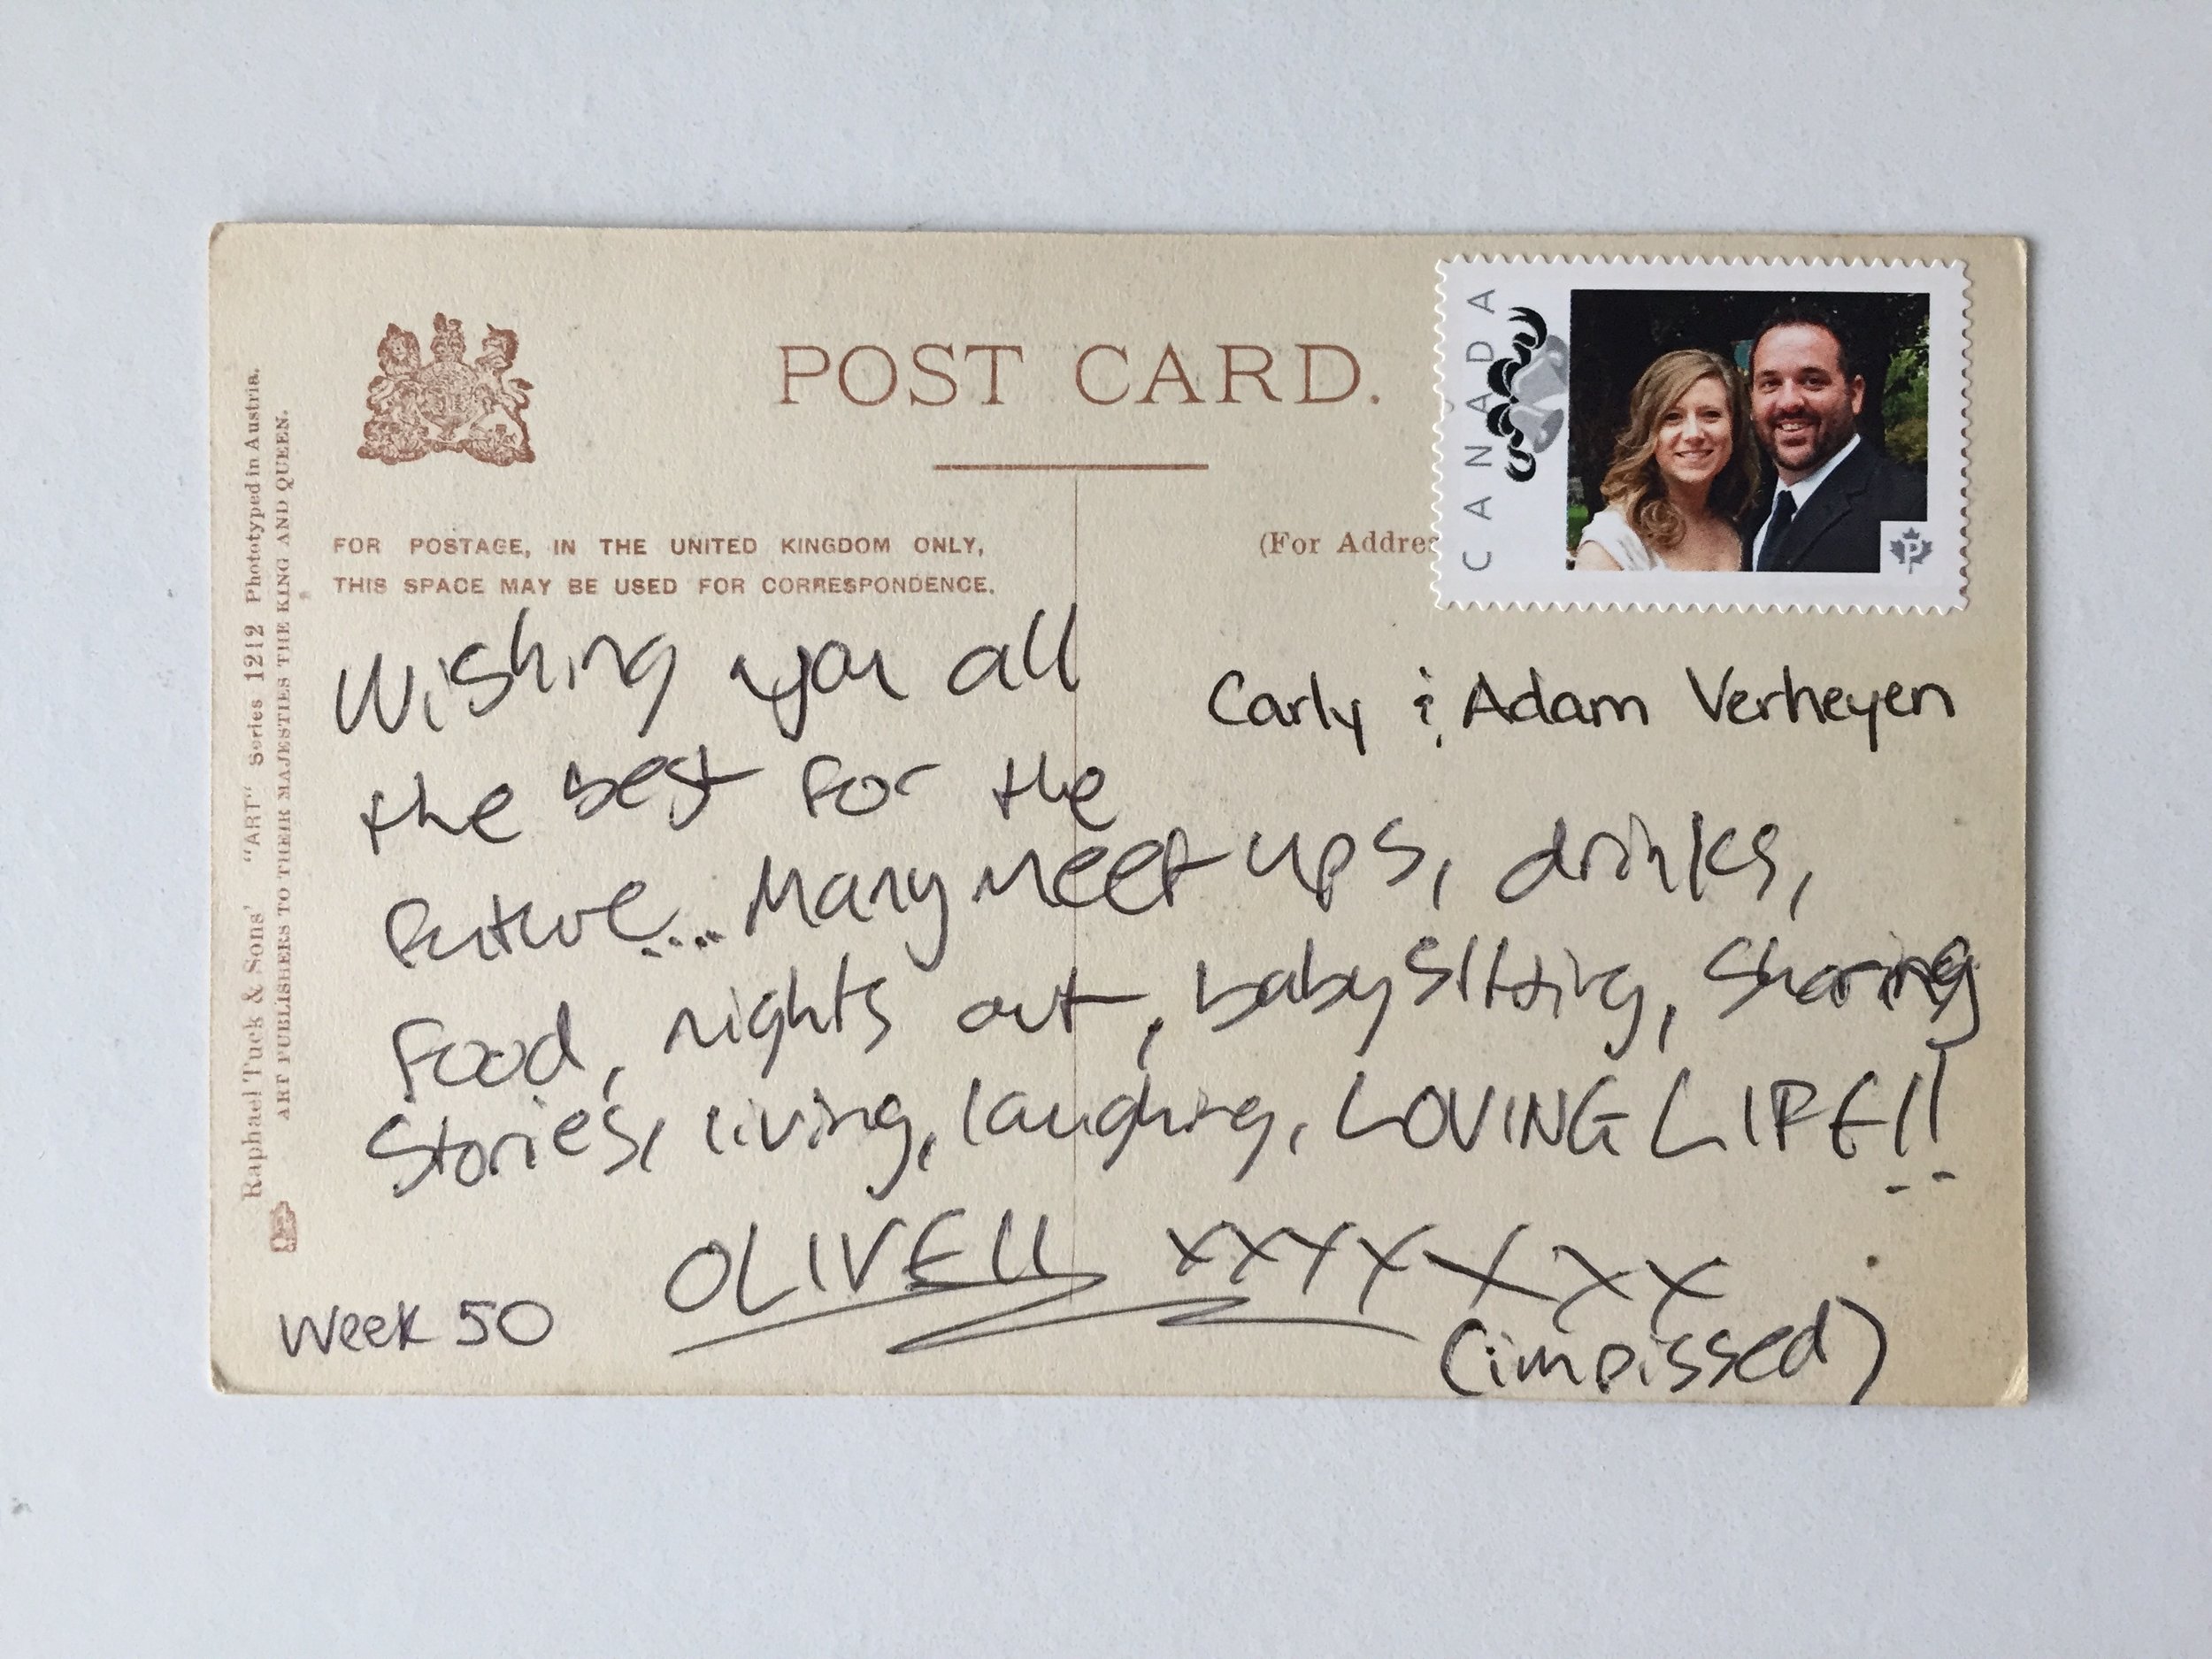 POST CARD.
CANADA
P
FOR POSTAGE, IN THE UNITED KINGDOM ONLY,
THIS SPACE MAY BE USED FOR CORRESPONDENCE.
(For Addres
Raphael Tuck & Sons' "ART" Series 1212 Phototyped in Austria.
ART PUBLISHERS TO THEIR MAJESTIES THE KING AND QUEEN.
Carly & Adam Verheyen
Wishing you all
the best for the
future.... Many meet ups, drinks,
food, nights out, babysitting, sharing
stories, living, laughing, LOVING LIFE!!
OLIVE!! xxxxxxx
(im pissed)
Week 50